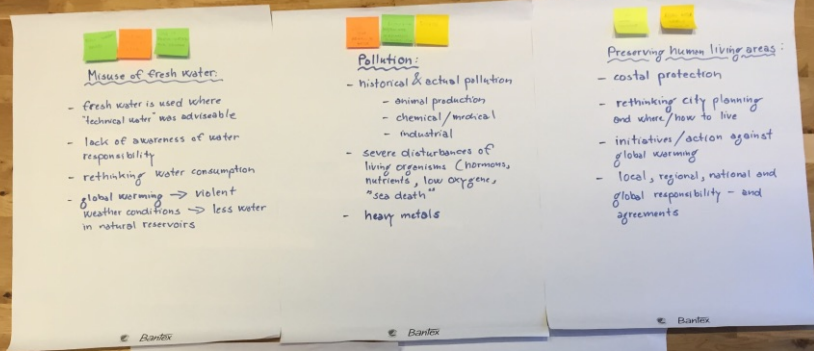 Misuse of fresh water:
- fresh water is used where
"technical water" was adviseable
- lack of awareness of water
responsibility
- rethinking water consumption
- global warming → violent
weather conditions → less water
in natural reservoirs
Bantex
Pollution:
- historical & actual pollution
- animal production
- chemical/medical
- industrial
- severe disturbances of
living organisms (hormons,
nutrients, low oxygene,
"sea death"
- heavy metals
Bantex
Preserving human living areas:
- costal protection
- rethinking city planning
and where/how to live
- initiatives/action against
global warming
- local, regional, national and
global responsibility - and
agreements
Bantex